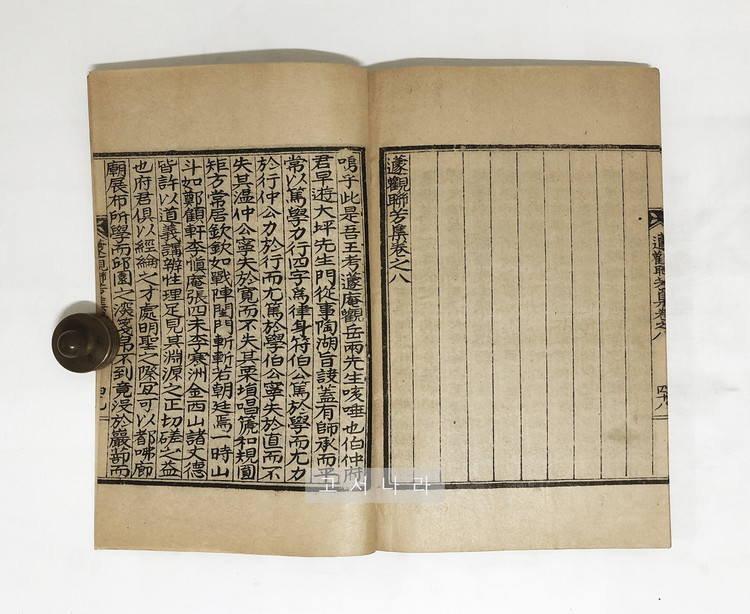 邃觀聯芳集卷之八
四十八
邃觀聯芳集卷之八
嗚乎此是吾王考邃庵觀岳兩先生咳唾也伯仲府
君早遊大坪先生門從事陶湖旨訣蓋有師承而平
常以篤學力行四字爲律身符伯公篤於學而尤力
於行仲公力於行而尤篤於學伯公寧失於直而不
失其温仲公寧失於寬而不失其栗塤唱篪和規圓
矩方常居欽欽如戰陣閨門斬斬若朝廷焉一時山
斗如鄭顧軒李愼庵張四未李寒洲金西山諸丈德
皆許以道義講辨性理足見其淵源之正切磋之益
也府君俱以經綸之才處明聖之際宜可以都咈廊
廟展布所學而邱園之深箋帛不到竟浸於巖而
邃觀聯芳集
고서나라